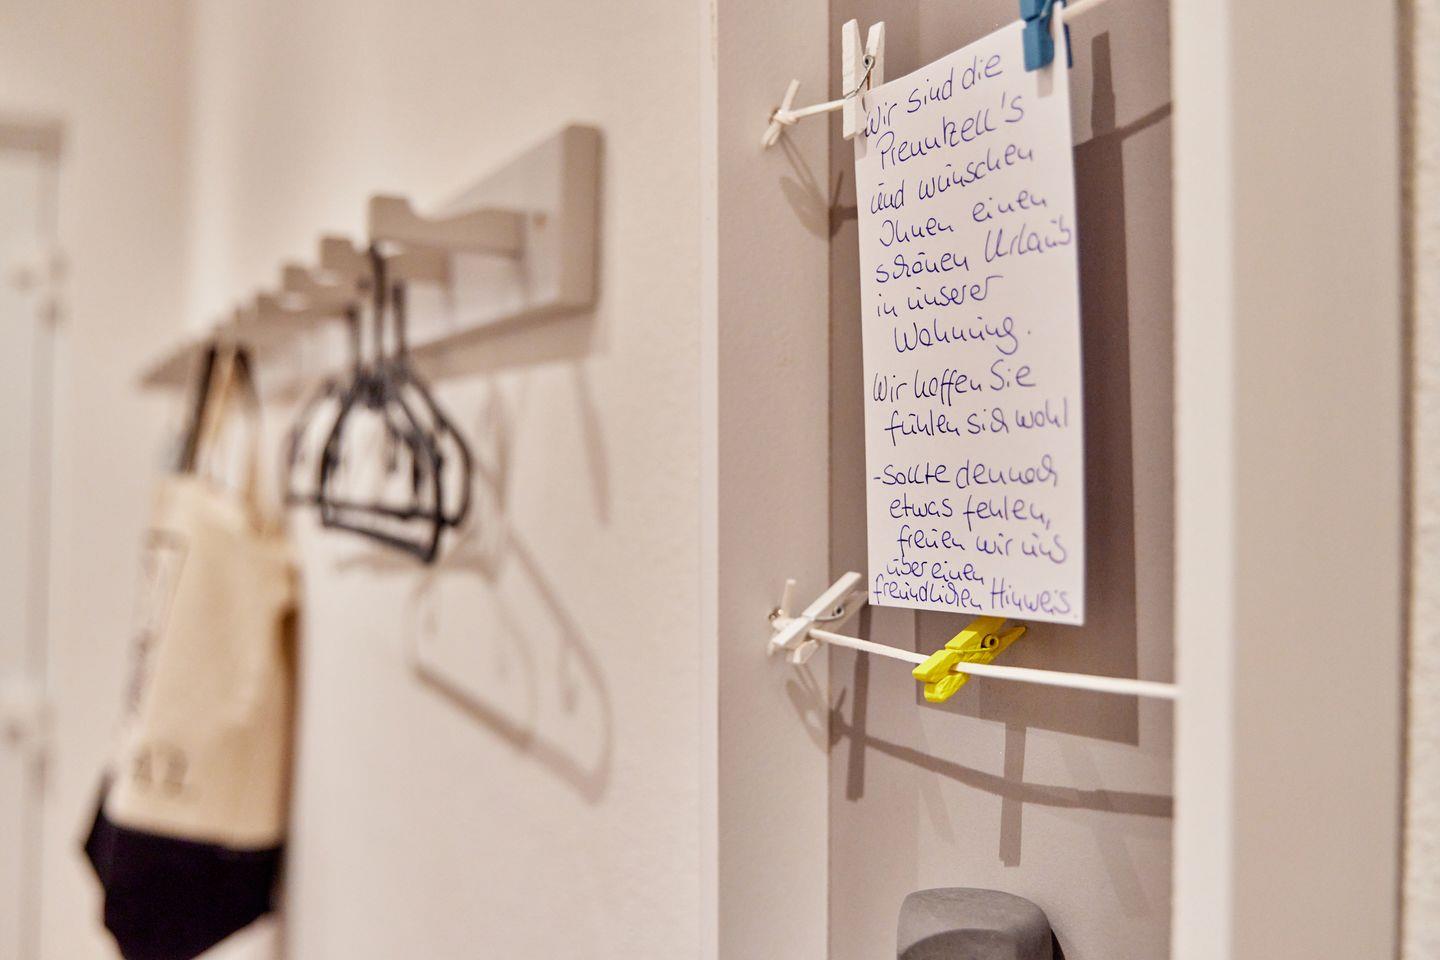 Wir sind die
Prenntzell's
und wünschen
Ihnen einen
schönen Urlaub
in unserer
Wohnung.
Wir hoffen Sie
fühlen sich wohl
- sollte dennoch
etwas fehlen,
freuen wir uns
über einen
freundlichen Hinweis.